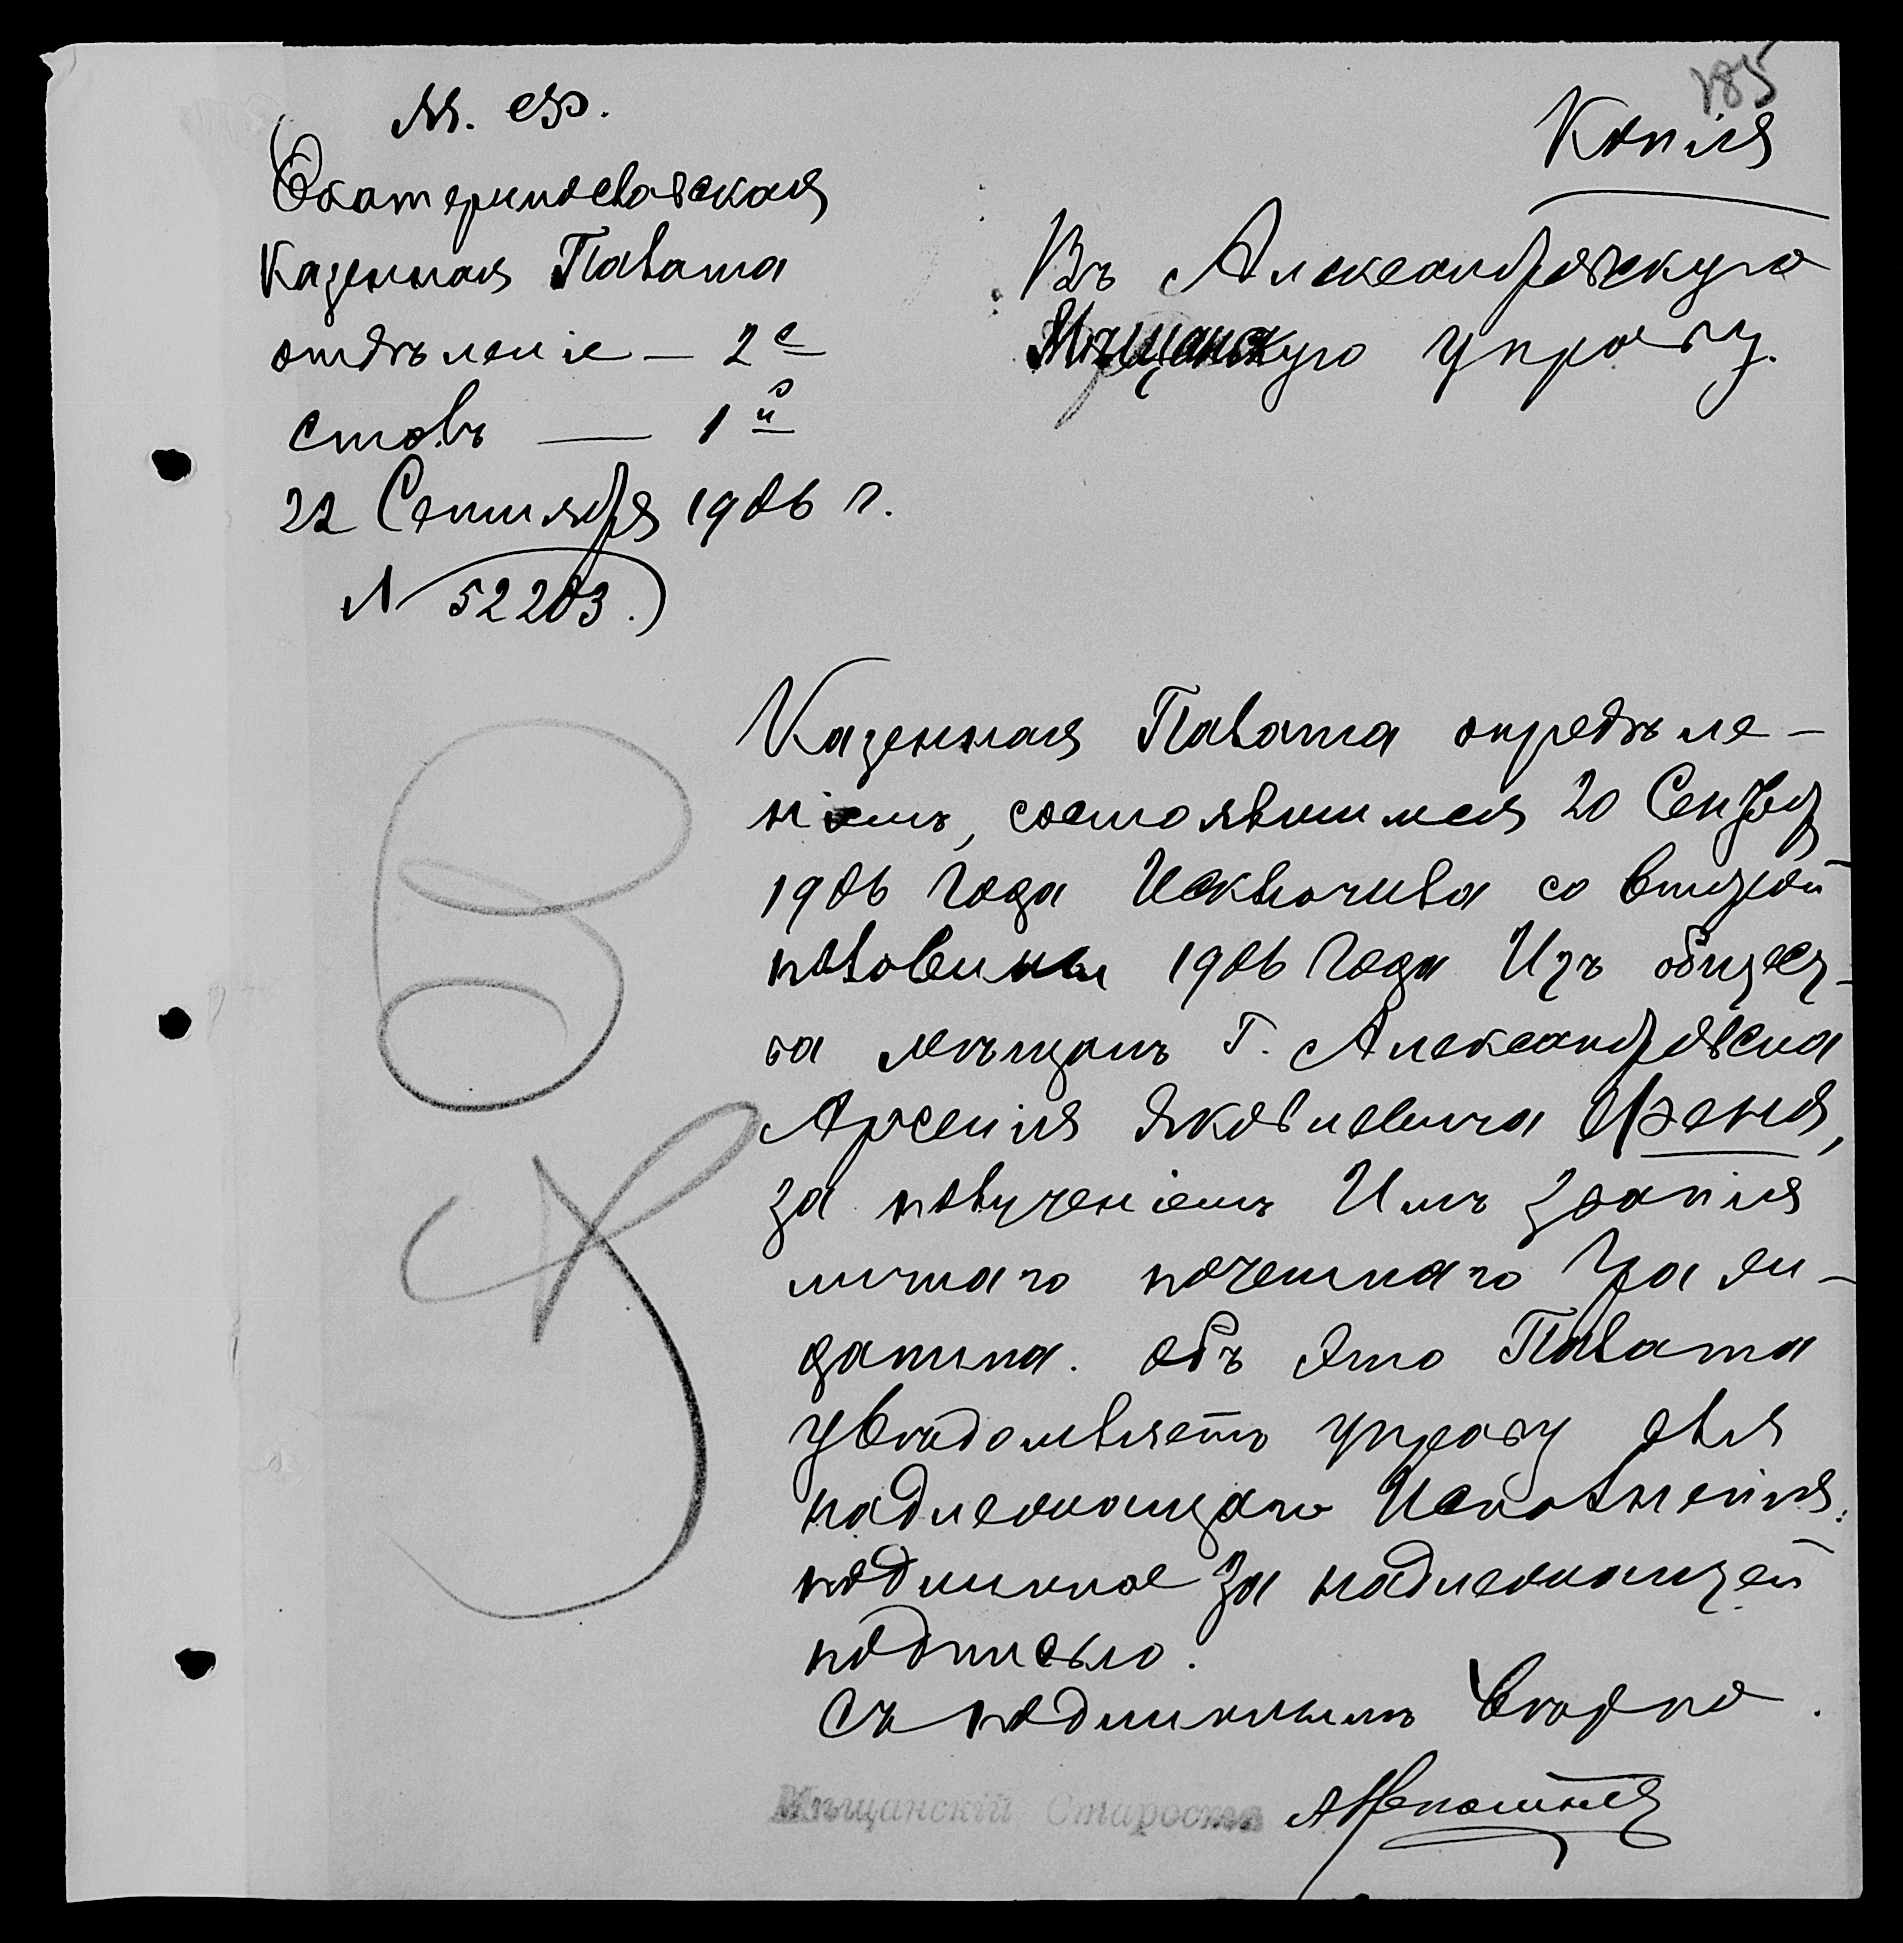 185
Копія
М. Ф.
Екатеринославская
Казенная Палата
отдѣленіе — 2е
столъ — 1й
22 Сентября 1906 г.
№ 52203.
Въ Александровскую
Мѣщанскую управу.
Казенная Палата опредѣле-
ніемъ, состоявшимся 20 Сентября
1906 года Исключила со второй
половины 1906 года Изъ общест-
ва мѣщанъ г. Александровска
Арсенія Яковлевича
за полученіемъ Имъ званія
личнаго почетнаго Граж-
данина. объ этомъ Палата
увѣдомляетъ управу для
надлежащаго Исполненія.
подлинное за надлежащей
подписью.
Съ подлиннымъ вѣрно.
Мѣщанскій Староста